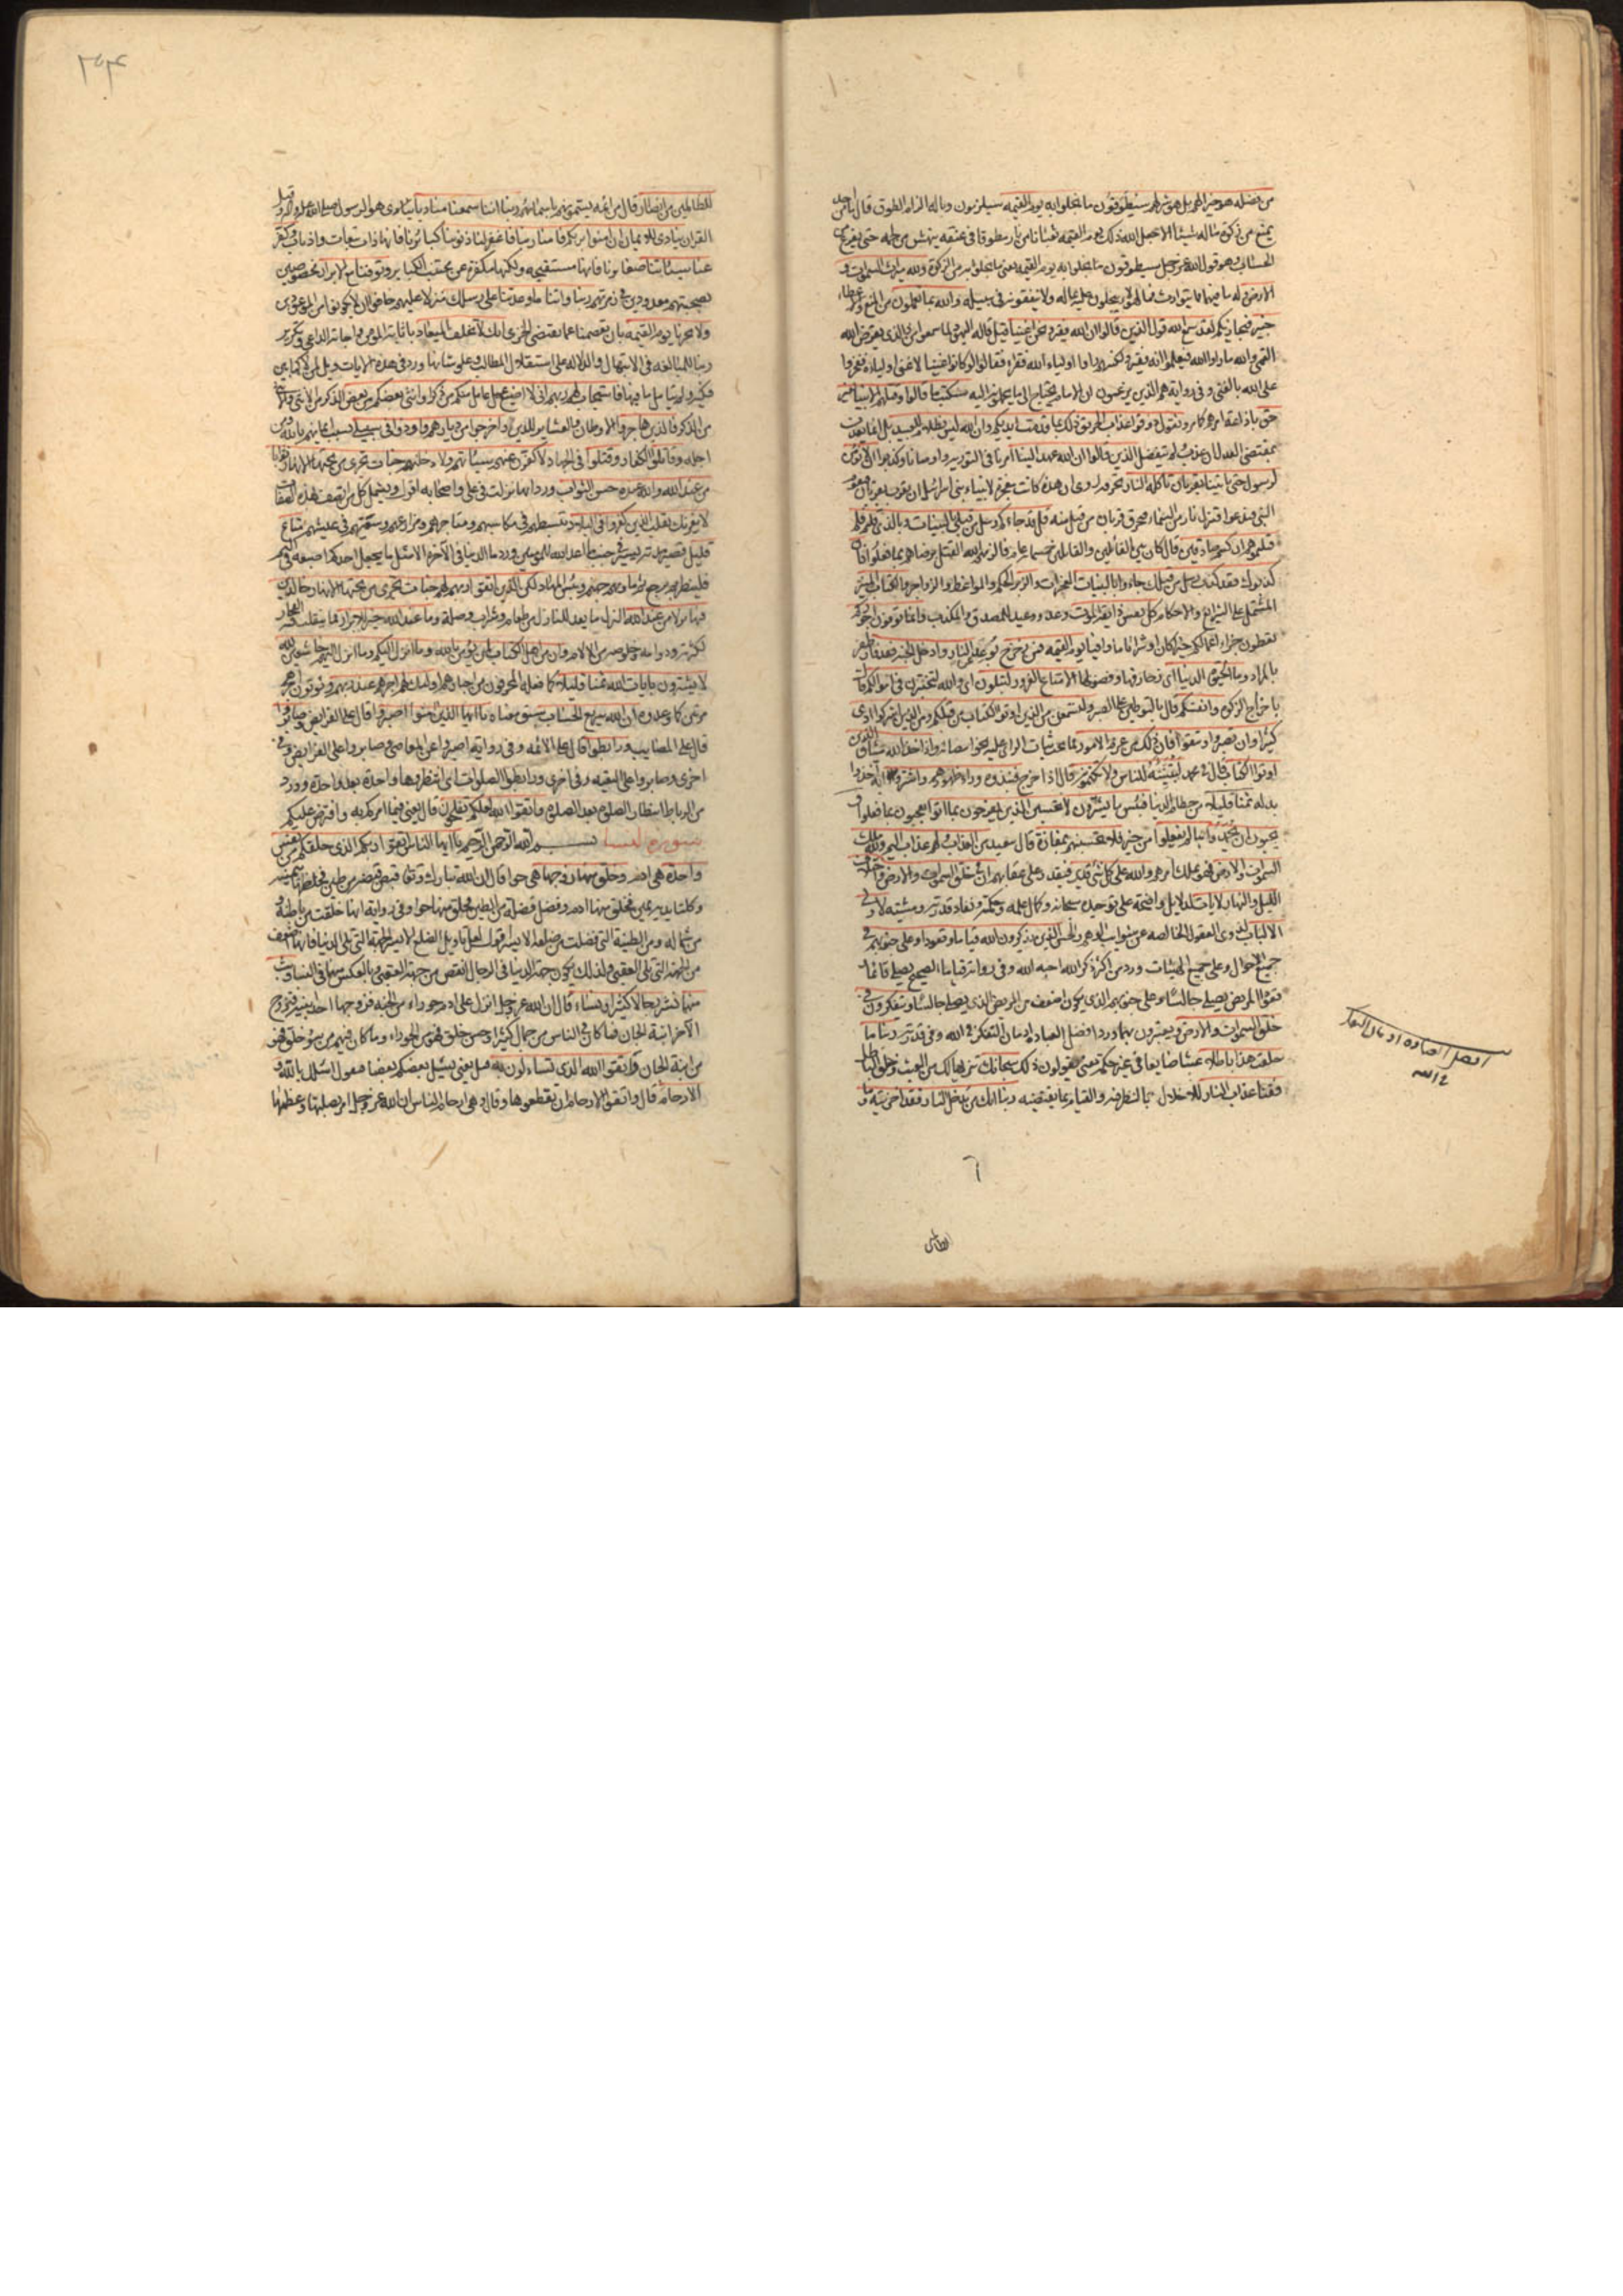 من فضله هو خيرا لهم بل هو شر لهم سيطوقون ما بخلوا به يوم القيمه سيلزمون وباله الزام الطوق قال ما من احد
يمنع من زكوة ماله شيئا الا جعل الله ذلك يوم القيمه ثعبانا من نار مطوقا في عنقه ينهش من لحمه حتى يفرغ من
الحساب وهو قول الله عز وجل سيطوقون ما بخلوا به يوم القيمه يعني ما بخلوا به من الزكوة ولله ميراث السموات و
الارض وله ما فيهما مما يتوارث فما لهؤلاء يبخلون عليه بماله ولا ينفقونه في سبيله والله بما تعملون من المنع والاعطاء
خبير فيجازيكم لقد سمع الله قول الذين قالوا ان الله فقير ونحن اغنياء قيل قاله اليهود لما سمعوا من ذا الذي يقرض الله
القمي والله ما راوا الله فيعلموا انه فقير ولكنهم راوا اولياء الله فقراء فقالوا لو كان غنيا لاغنى اولياءه ففخروا
على الله بالغنى وفي رواية هم الذين يزعمون ان الامام يحتاج الى ما يحملون اليه سنكتب ما قالوا وقتلهم الانبياء بغير
حق ونقول ذوقوا عذاب الحريق ذلك بما قدمت ايديكم وان الله ليس بظلام للعبيد بل انما يعذب
بمقتضى العدل ان عذب ولم يتفضل الذين قالوا ان الله عهد الينا امرنا في التورية واوصانا وكذبوا الا نؤمن
لرسول حتى ياتينا بقربان تاكله النار روي ان هذه كانت معجزة لانبياء بني اسرائيل ان يقرب بقربان فيقوم
النبي فيدعو فتنزل نار من السماء فتحرق قربان من قبل منه قل قد جاءكم رسل من قبلي بالبينات وبالذي قلتم فلم
قتلتموهم ان كنتم صادقين قال كان بين القائلين والقاتلين خمسماية عام فالزمهم الله القتل برضاهم بما فعلوا فان
كذبوك فقد كذب رسل من قبلك جاءوا بالبينات المعجزات والزبر الحكم والمواعظ والزواجر والكتاب المنير
المشتمل على الشرائع والاحكام كل نفس ذائقة الموت وعد ووعيد للمصدق والمكذب وانما توفون اجوركم
تعطون جزاء اعمالكم خيرا كان او شرا تاما وافيا يوم القيمه فمن زحزح بوعد عن النار وادخل الجنة فقد فاز ظفر
بالمراد وما الحيوة الدنيا اي زخارفها وفضولها الا متاع الغرور لتبلون اي والله لتختبرن في اموالكم قال
باخراج الزكوة وانفسكم قال بالتوطين على الصبر ولتسمعن من الذين اوتوا الكتاب من قبلكم ومن الذين اشركوا اذى
كثيرا وان تصبروا وتتقوا فان ذلك من عزم الامور مما يجب ثبات الراي عليه واذ اخذ الله ميثاق الذين
اوتوا الكتاب قال في محمد لتبيننه للناس ولا تكتمونه قال اذا خرج فنبذوه وراء ظهورهم واشتروا به اخذوا
بدله ثمنا قليلا من حطام الدنيا فبئس ما يشترون لا تحسبن الذين يفرحون بما اتوا يعجبون بما فعلوا و
يحبون ان يحمدوا بما لم يفعلوا من خير فلا تحسبنهم بمفازة قال ببعيد من العذاب ولهم عذاب اليم ولله ملك
السموات والارض فهو يملك امرهم والله على كل شيء قدير فيقدر على عقابهم ان في خلق السموات والارض واختلاف
الليل والنهار لايات لدلايل واضحة على توحيده سبحانه وكمال علمه وحكمته ونفاذ قدرته ومشيته لاولي
الالباب لذوي العقول الخالصه عن شوائب الوهم والحس الذين يذكرون الله قياما وقعودا وعلى جنوبهم في
جميع الاحوال وعلى جميع الهيئات ورد من اكثر ذكر الله احبه الله وفي رواية قياما الصحيح يصلي قائما
وقعودا المريض يصلي جالسا وعلى جنوبهم الذي يكون اضعف من المريض الذي يصلي جالسا ويتفكرون في
خلق السموات والارض ويعتبرون بهما ورد افضل العبادة ادمان التفكر في الله وفي قدرته ربنا ما
خلقت هذا باطلا عبثا ضايعا من غير حكمة يعني يقولون ذلك سبحانك تنزيها لك من العبث وخلق الباطل
فقنا عذاب النار للاخلال بالنظر فيه والقيام بما يقتضيه ربنا انك من تدخل النار فقد اخزيته وما
افضل العباده ادمان التفكر
في الله
للظالمين
للظالمين من انصار قال من ائمه يسمونهم باسمائهم ربنا اننا سمعنا مناديا ينادي هو الرسول صلى الله عليه واله وقيل
القران ينادي للايمان ان امنوا بربكم فامنا ربنا فاغفر لنا ذنوبنا كبائرنا فانها ذات تبعات واذناب وكفر
عنا سيئاتنا صغائرنا فانها مستقبحة ولكنها مكفرة عن مجتنب الكبائر وتوفنا مع الابرار مخصوصين
بصحبتهم معدودين في زمرتهم ربنا واتنا ما وعدتنا على رسلك منزلا عليهم
ولا تخزنا يوم القيمه بان تعصمنا عما يقتضي الخزي انك لا تخلف الميعاد باثابة المؤمن واجابة الداعي وتكرير
ربنا للمبالغه في الابتهال والدلالة على استقلال المطالب وعلو شانها ورد في هذه الايات ويل لمن لاكها بين
فكيه ولم يتامل ما فيها فاستجاب لهم ربهم اني لا اضيع عمل عامل منكم من ذكر او انثى بعضكم من بعض الذكر من الانثى والانثى
من الذكر فالذين هاجروا الاوطان والعشاير للدين واخرجوا من ديارهم واوذوا في سبيلي بسبب ايمانهم بالله ومن
اجله وقاتلوا الكفار وقتلوا في الجهاد لاكفرن عنهم سيئاتهم ولادخلنهم جنات تجري من تحتها الانهار ثوابا
من عند الله والله عنده حسن الثواب ورد انها نزلت في علي واصحابه اقول ويشمل كل من اتصف بهذه الصفات
لا يغرنك تقلب الذين كفروا في البلاد تبسطهم في مكاسبهم ومتاجرهم ومزارعهم وسعتهم في عيشهم متاع
قليل قصير مدته يسير في جنب ما اعد الله للمؤمنين ورد ما الدنيا في الاخرة الا مثل ما يجعل احدكم اصبعه في اليم
فلينظر بم يرجع ثم ماويهم جهنم وبئس المهاد لكن الذين اتقوا ربهم لهم جنات تجري من تحتها الانهار خالدين
فيها نزلا من عند الله النزل ما يعد للنازل من طعام وشراب وصلة وما عند الله خير للابرار مما يتقلب فيه الفجار
لكثرته ودوامه وخلوصه من الالام وان من اهل الكتاب لمن يؤمن بالله وما انزل اليكم وما انزل اليهم خاشعين لله
لا يشترون بايات الله ثمنا قليلا كما فعله المحرفون من احبارهم اولئك لهم اجرهم عند ربهم ويؤتون اجرهم
مرتين كما وعدوه ان الله سريع الحساب سبق معناه يا ايها الذين امنوا اصبروا قال على الفرايض وصابروا
قال على المصايب ورابطوا قال على الائمه وفي رواية اصبروا عن المعاصي وصابروا على الفرايض وفي
اخرى وصابروا على التقيه وفي اخرى ورابطوا الصلوات اي انتظروها واحدة بعد واحدة وورد
من الرباط انتظار الصلوة بعد الصلوة واتقوا الله لعلكم تفلحون قال يعني فيما امركم به وافترض عليكم
سورة النسا بسم الله الرحمن الرحيم يا ايها الناس اتقوا ربكم الذي خلقكم من نفس
واحدة هي ادم وخلق منها زوجها هي حوا قال ان الله تبارك وتعالى قبض قبضة من طين فخلطها بيمينه
وكلتا يديه يمين فخلق منها ادم وفضل فضلة من الطين فخلق منها حوا وفي رواية انها خلقت من باطنه و
من شماله ومن الطينة التي فضلت من ضلعه الايسر اقول لعل تاويل الضلع الايسر الجهة التي تلي الدنيا فانها اضعف
من الجهة التي تلي العقبى ولذلك يكون جهة الدنيا في الرجال انقص من جهة العقبى وبالعكس منهما في النساء وبث
منهما نشر رجالا كثيرا ونساء قال ان الله عز وجل انزل على ادم حوراء من الجنة فزوجها احد ابنيه وتزوج
الاخر ابنة الجان فما كان في الناس من جمال كثير او حسن خلق فهو من الحوراء وما كان فيهم من سوء خلق فهو
من ابنة الجان واتقوا الله الذي تساءلون به قيل يعني يسئل بعضكم بعضا فيقول اسئلك بالله و
الارحام قال واتقوا الارحام ان تقطعوها وقال هي ارحام الناس ان الله عز وجل امر بصلتها وعظمها